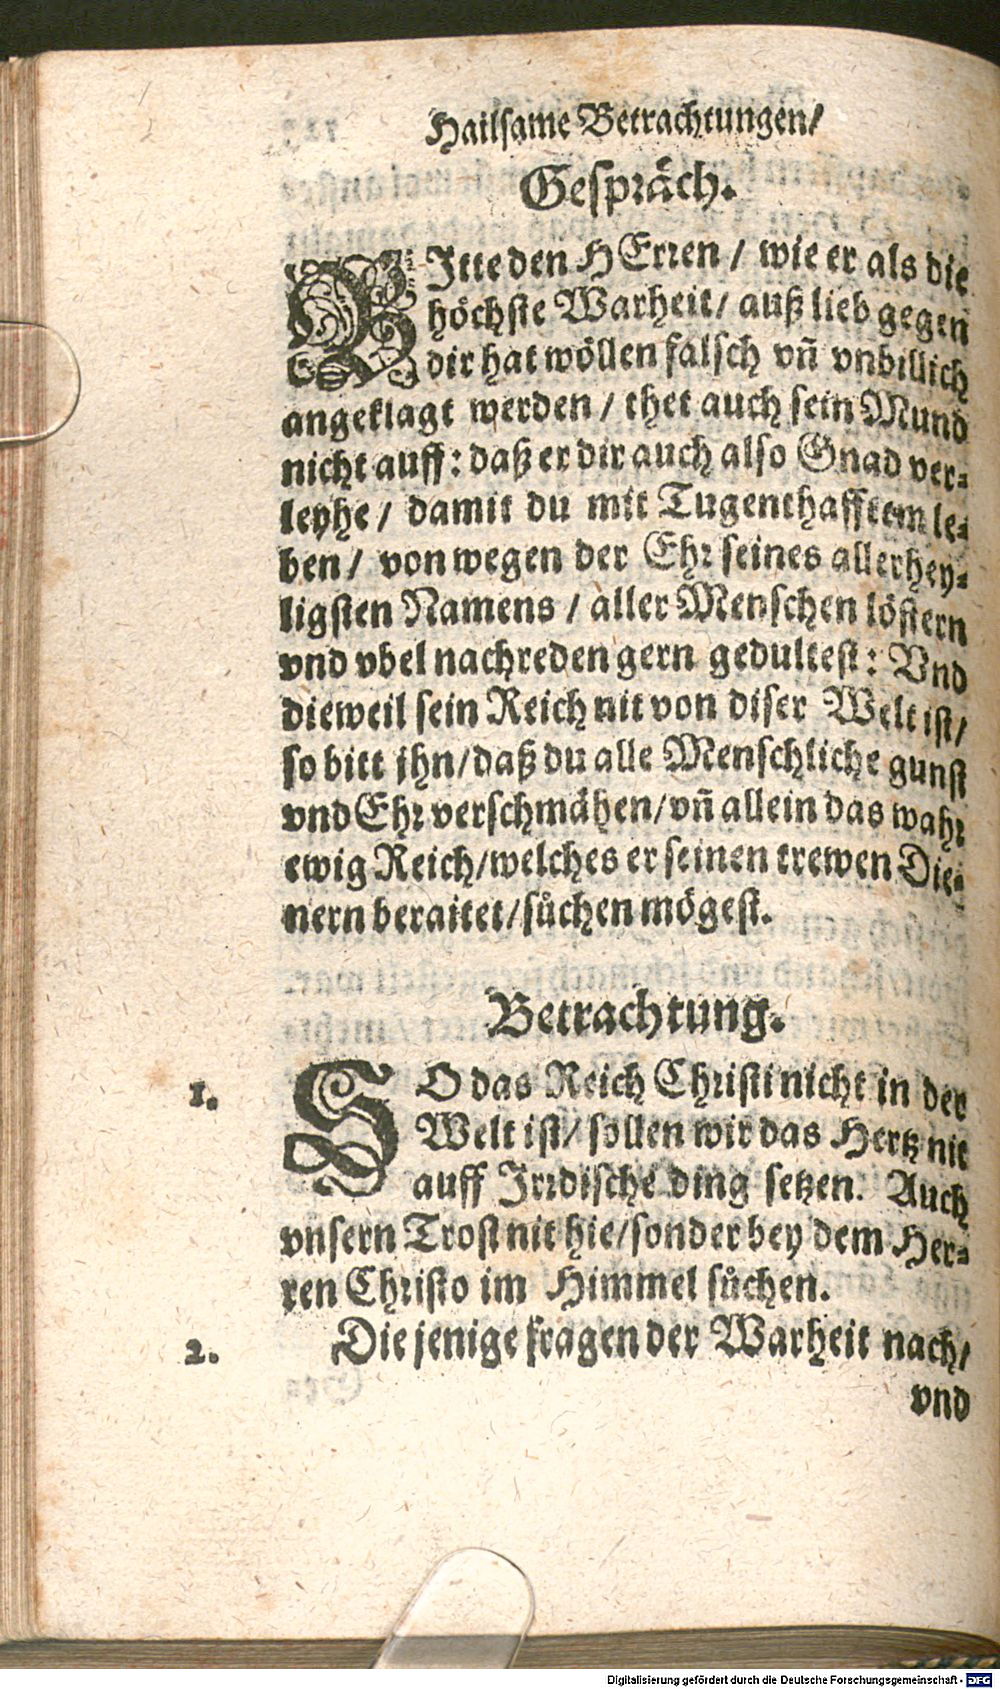 Hailsame Betrachtungen/
Gespräch.
BItte den HErren / wie er als die
höchste Warheit/ auß lieb gegen
dir hat wöllen falsch vñ vnbillich
angeklagt werden / thet auch sein Mund
nicht auff: daß er dir auch also Gnad ver-
leyhe / damit du mit Tugenthafftem le-
ben / von wegen der Ehr seines allerhey-
ligsten Namens / aller Menschen löstern
vnd vbel nachreden gern gedultest: Vnd
dieweil sein Reich nit von diser Welt ist/
so bitt jhn/daß du alle Menschliche gunst
vnd Ehr verschmähen/vñ allein das wahr
ewig Reich/welches er seinen trewen Die-
nern beraitet/sůchen mögest.
Betrachtung.
1. SO das Reich Christi nicht in der
Welt ist/ sollen wir das Hertz nit
auff Jrrdische ding setzen. Auch
vnsern Trost nit hie/sonder bey dem Her-
ren Christo im Himmel sůchen.
2. Die jenige fragen der Warheit nach/
vnd
Digitalisierung gefördert durch die Deutsche Forschungsgemeinschaft - DFG